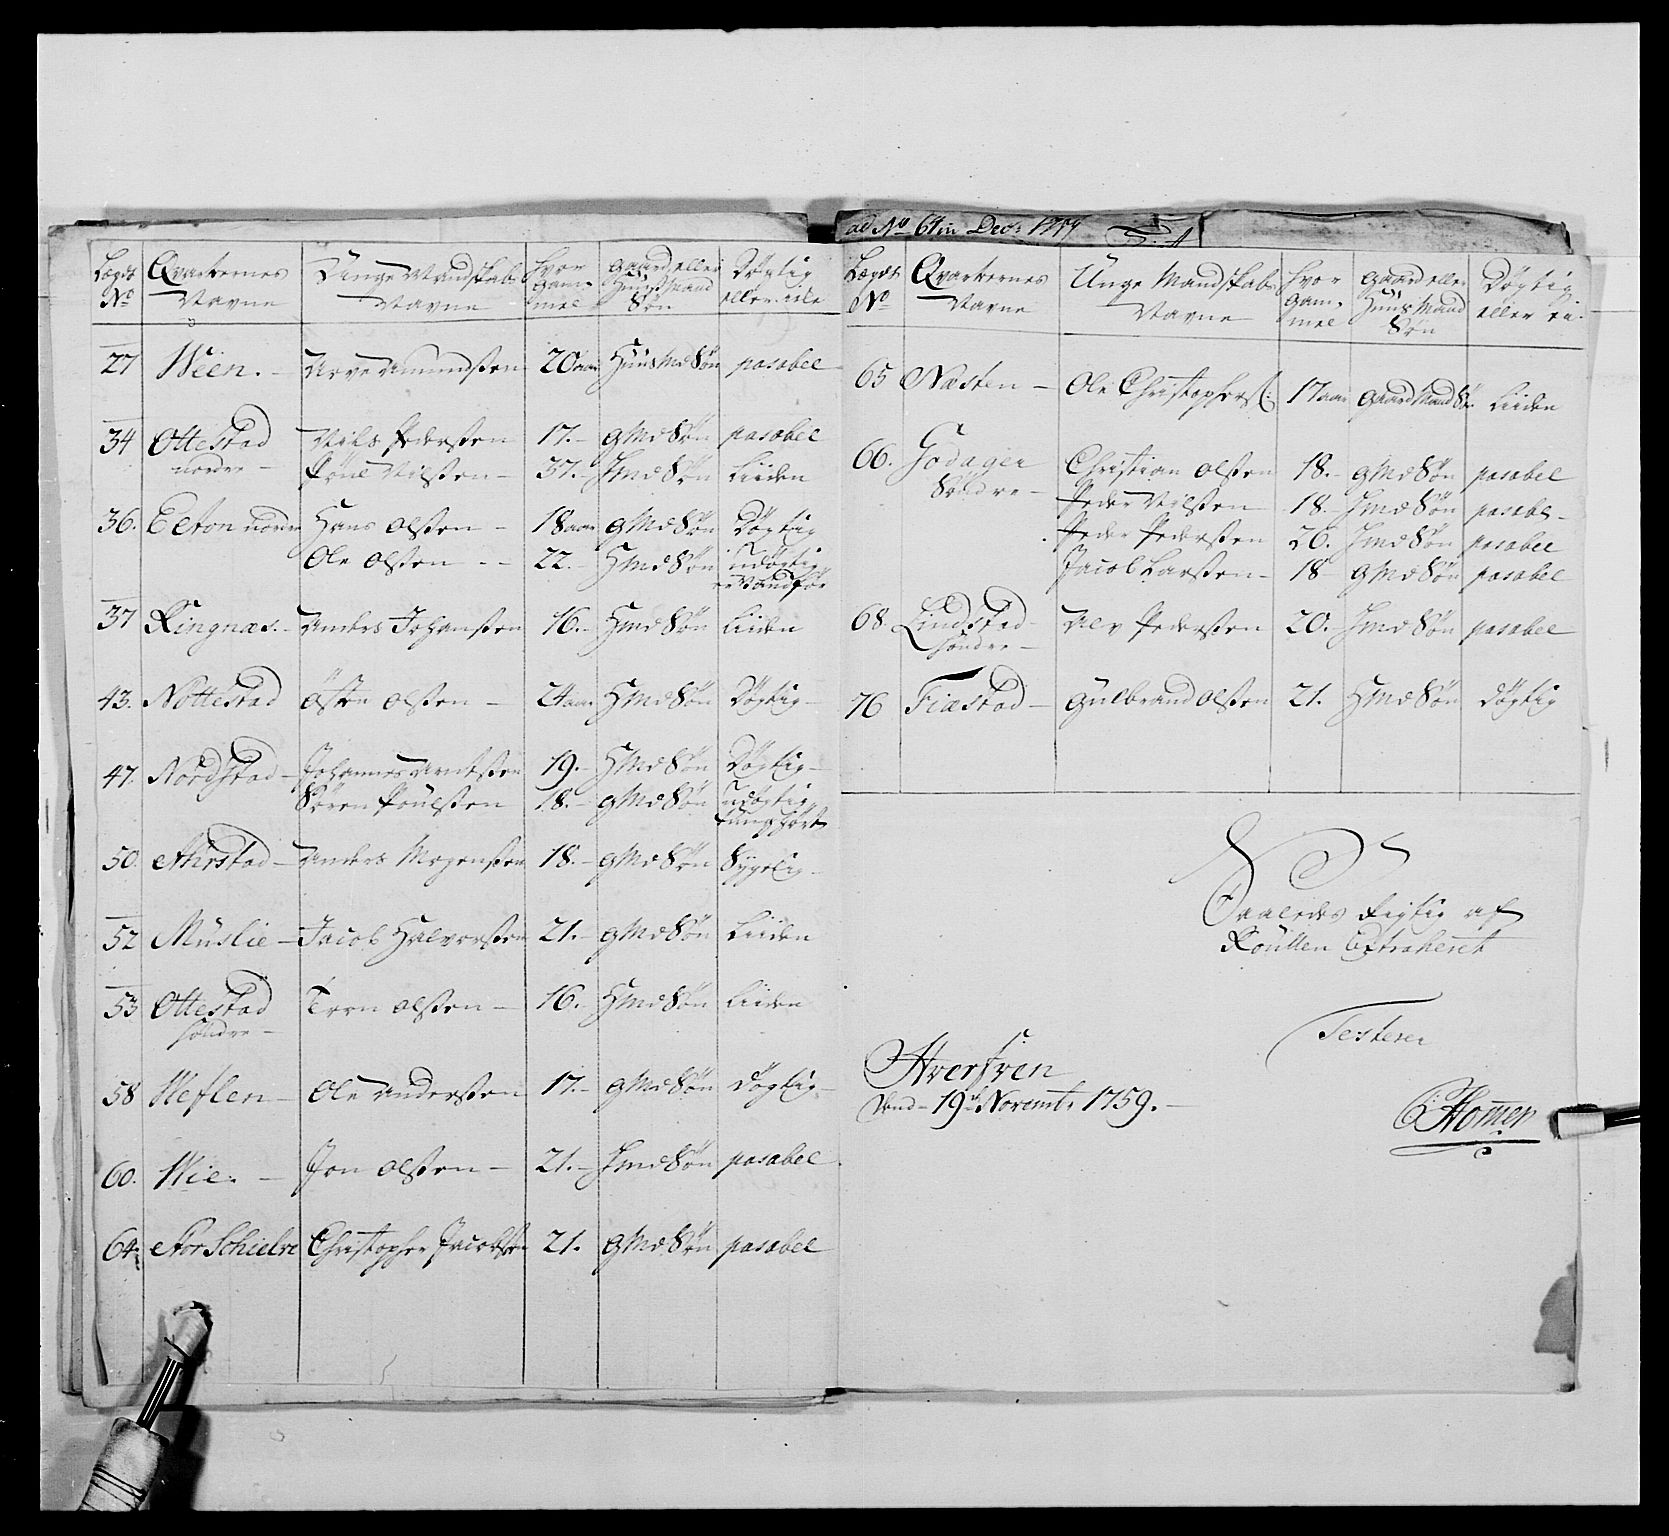 Lægds No | Qvarternes Navne | Unge Mandskabs Navne | hvor gam- mel | gaard eller Huus Mand Søn | Døgtig eller eike
27 | Wien. - | Arve Amundsen | 20 aar | Huus Md Søn | pasabel
34 | Ottestad | Nils Pedersen | 17. - | gMd Søn | pasabel
nordre - | Poul Nilsen - | 37. - | HMd Søn | Liiden
36. | Elton nordre | Hans Olsen - | 18 aar | gMd Søn | Døgtig
Ole Olsen - - | 22. - | HMd Søn | udøgtig
Vandfør
37 | Ringnæs. - | Anders Johansen | 16. - | HMd Søn | Liiden
43. | Nottestad | Østen Olsen - | 24 aar | HMd Søn | Døgtig -
47. | Nordstad - | Johannes Arntsen | 19. - | HMd Søn | Døgtig -
Søren Poulsen | 18. - | gMd Søn | udøgtig
tunghørt
50. | Ahrstad - | Anders Mogensen | 18. - | gMd Søn | Sygelig -
52 | Muslie - | Jacob Halvorsen | 21. - | gMd Søn | Liiden
53 | Ottestad | Olsen - | 16. - | HMd Søn | Liiden
søndre -
58 | Heflen - | Ole Andersen | 17. - | gMd Søn | Døgtig -
60. | Wie. - | Jon Olsen - | 21. - | HMd Søn | pasabel
64. | Nor Schielve | Christopher Jacobsen | 21. | gMd Søn | pasabel
ad No 61 in Decr:
Lægds No | Qvarternes Navne | Unge Mandskabs Navne | hvor gam- mel | gaard eller Huus Mand Søn | Døgtig eller ei.
65 | Næsten - | Ole Christophers: | 17 aar | gaard Mand Søn | Liiden
66. | Godager | Christian Olsen | 18. - | gMd Søn | pasabel
Søndre - | Peder Nilsen | 18. - | HMd Søn | pasabl -
Peder Pedersen | 26. | HMd Søn | pasabel
Jacob Larsen - | 18 - | gMd Søn | pasabel
68. | Lindstad | Alv Pedersen | 20. - | HMd Søn | pasabel
søndre -
76 | Fiæstad - | Gulbrand Olsen | 21. | HMd Søn | døgtig
Saaledes Rigtig af
Roullen Extraheret
Testerer
Hversven
Dend - 19de Novembr 1759. -
Homer